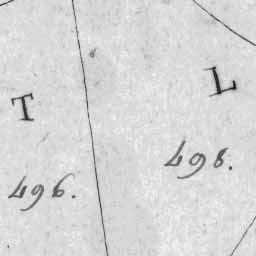 T
L
496.
498.